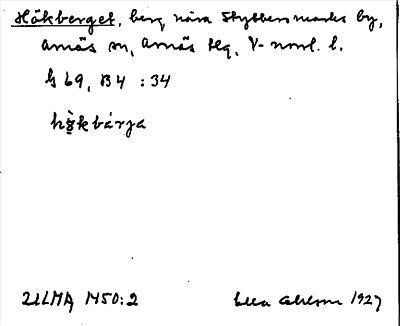 Hökberget, berg nära Stybbersmarks by,
Arnäs sn, Arnäs tlg, V-norrl. l.
G 69, B4 : 34
hö̀kbárja
ULMA 1450:2 Ella Ohlson 1927